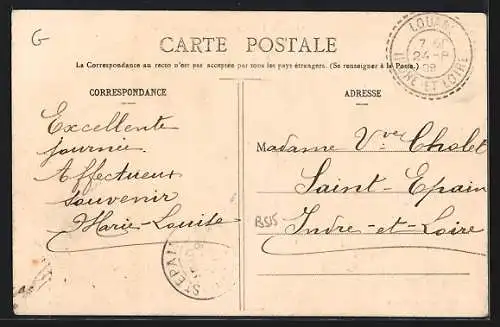 G
CARTE POSTALE
La Correspondance au recto n'est pas acceptée par tous les pays étrangers. (Se renseigner à la Poste.)
LOUANS
24-8
08
INDRE-ET-LOIRE
CORRESPONDANCE
Excellente
journée.
Affectueux
souvenir
Marie-Louise
ADRESSE
Madame Vve Cholet
Saint-Epain
Indre-et-Loire
B515
ST EPAIN